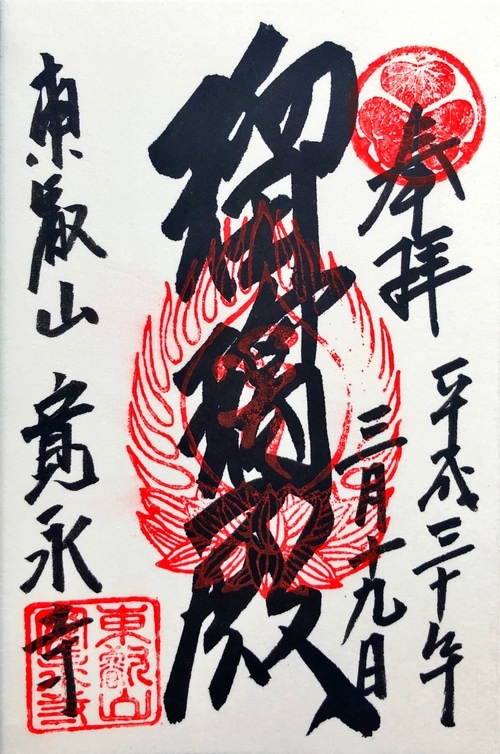 奉拝
平成三十年
三月十九日
瑠璃殿
東叡山 寛永寺
東叡山
寛永寺